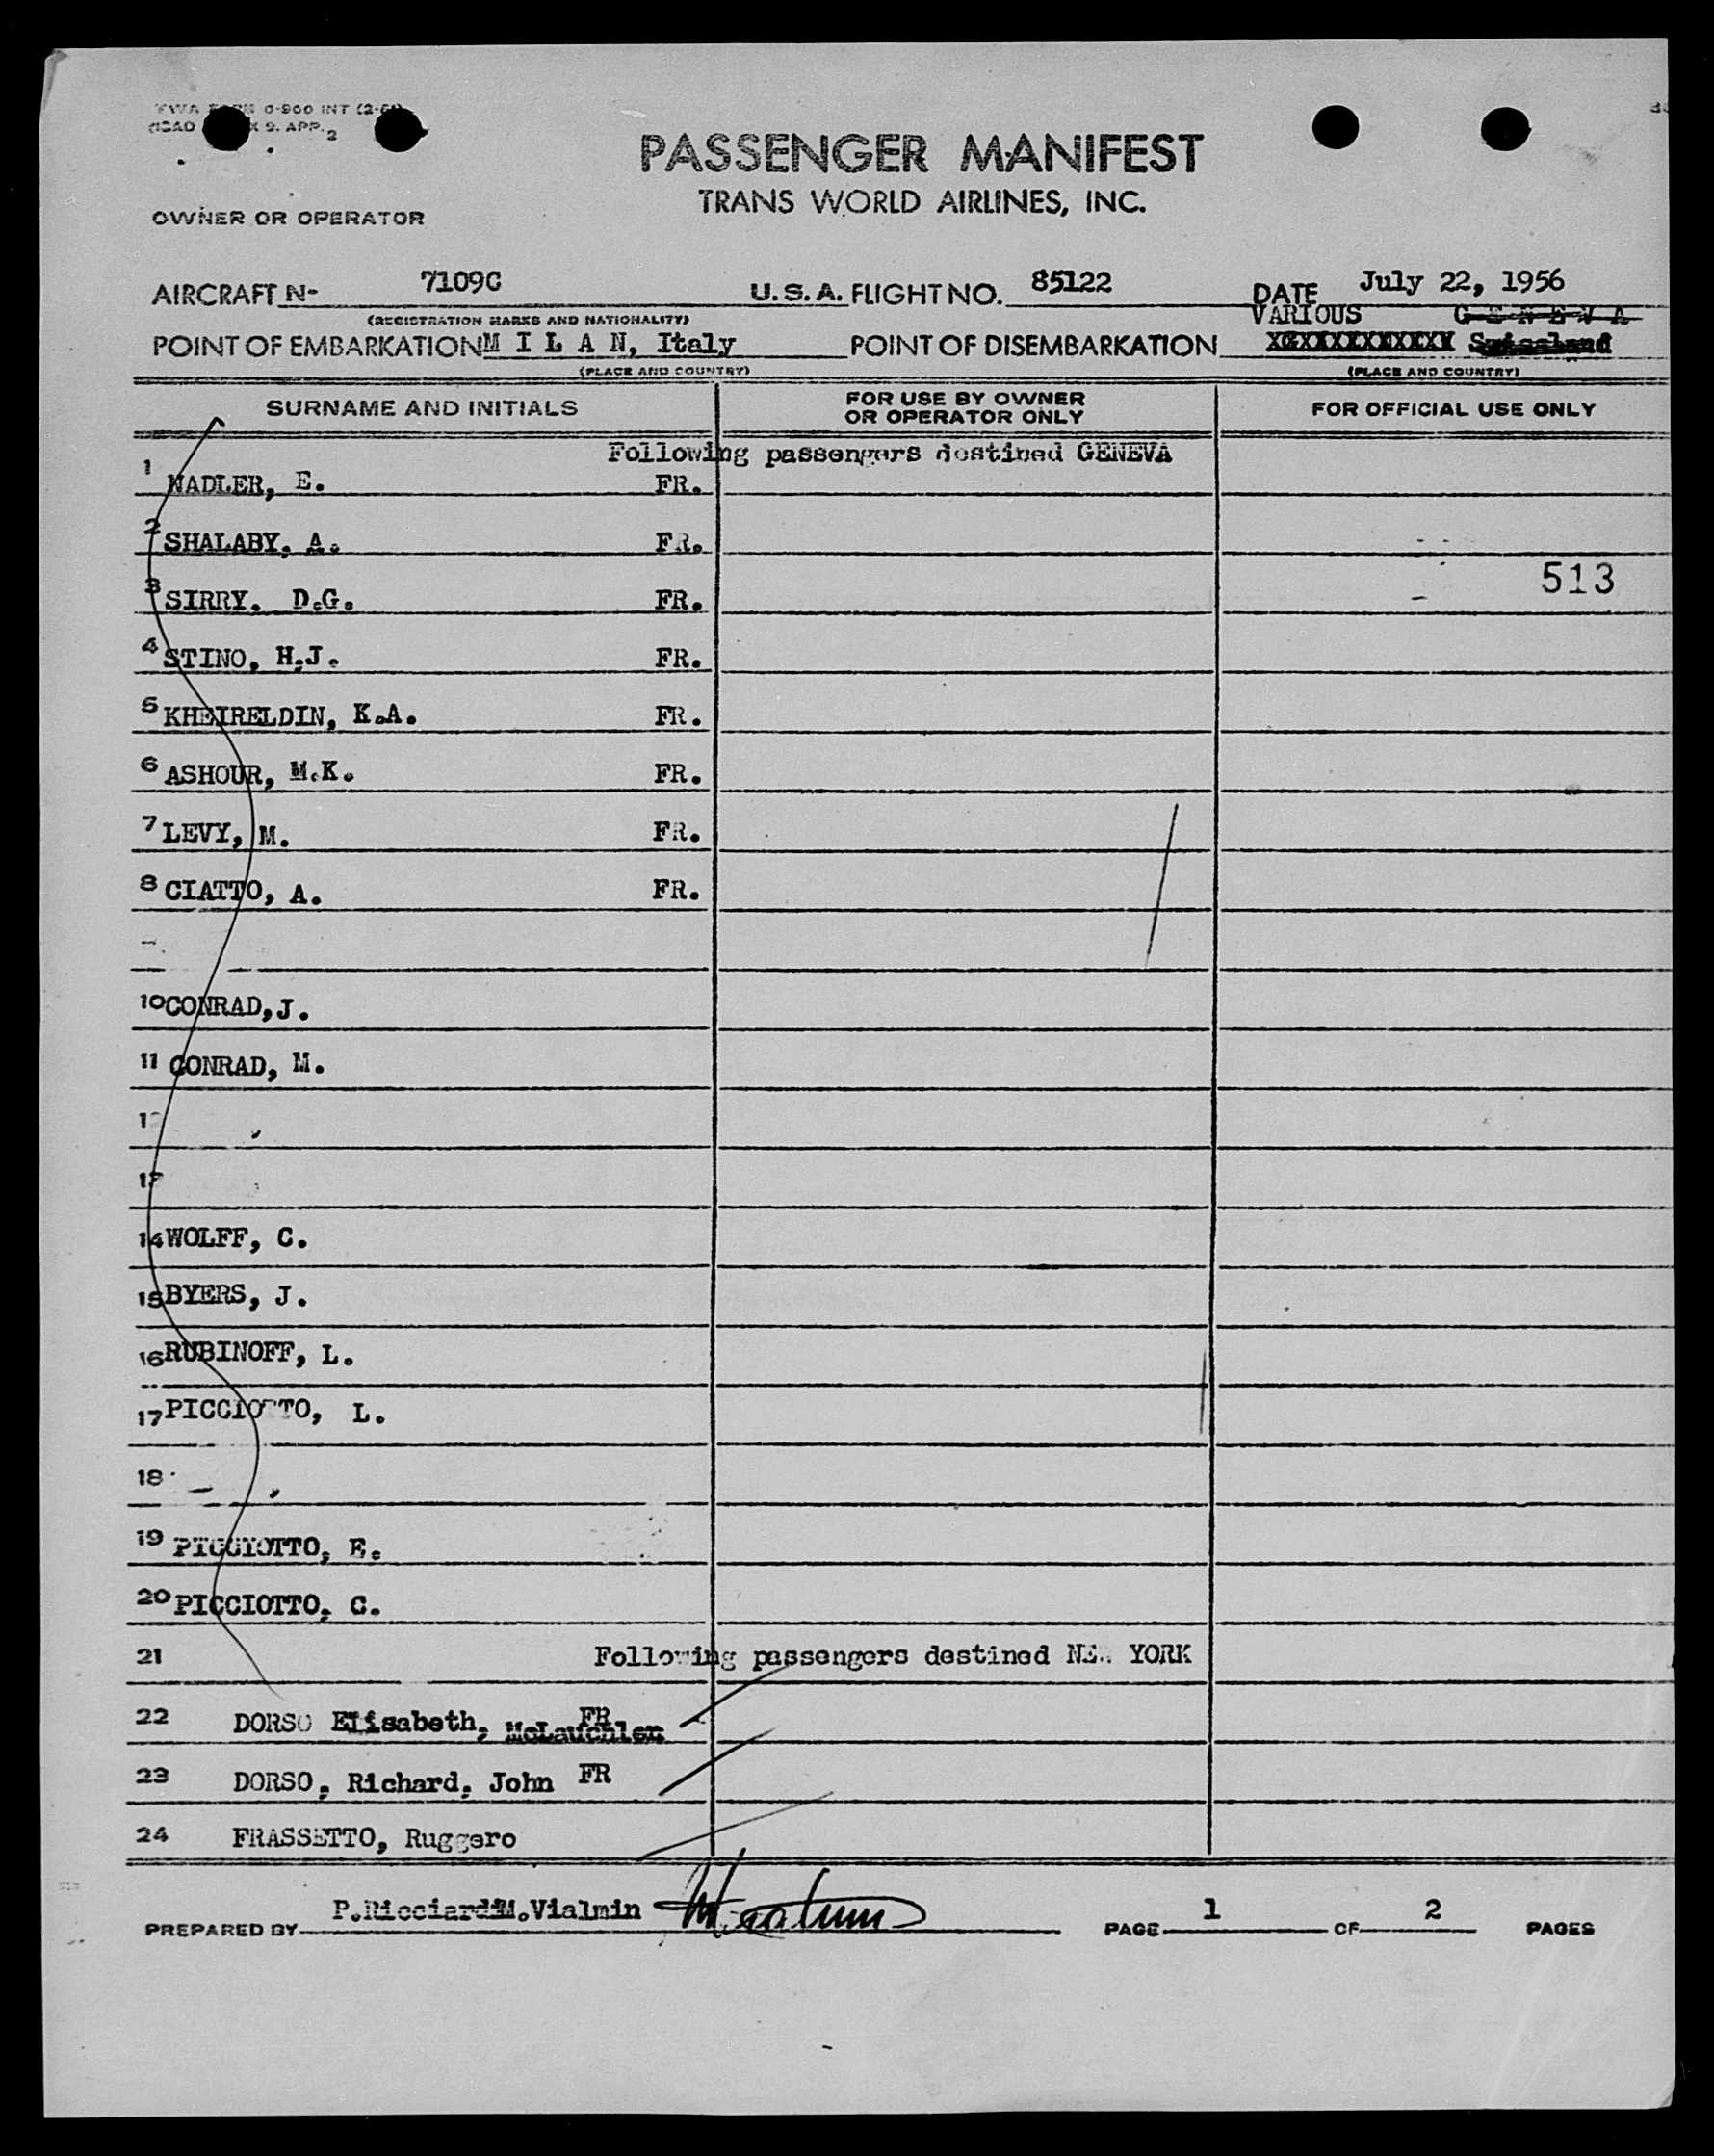 TWA FORM 0-900 INT
ICAO X 9. APP. 2
PASSENGER MANIFEST
TRANS WORLD AIRLINES, INC.
OWNER OR OPERATOR
AIRCRAFT N- 7109C U.S.A. FLIGHT NO. 85122 DATE July 22, 1956
(REGISTRATION MARKS AND NATIONALITY) VARIOUS GENEVA
POINT OF EMBARKATION M I L A N, Italy POINT OF DISEMBARKATION XGXXXXXXXXXX Swissland
(PLACE AND COUNTRY) (PLACE AND COUNTRY)
SURNAME AND INITIALS FOR USE BY OWNER OR OPERATOR ONLY FOR OFFICIAL USE ONLY
Following passengers destined GENEVA
1 NADLER, E. FR.
2 SHALABY, A. FR.
3 SIRRY, D.G. FR. 513
4 STINO, H.J. FR.
5 KHEIRELDIN, K.A. FR.
6 ASHOUR, M.K. FR.
7 LEVY, M. FR.
8 CIATTO, A. FR.
10 CONRAD, J.
11 CONRAD, M.
14 WOLFF, C.
15 BYERS, J.
16 RUBINOFF, L.
17 PICCIOTTO, L.
18
19 PICCIOTTO, E.
20 PICCIOTTO, C.
21 Following passengers destined NEW YORK
22 DORSO Elisabeth, McLauchlen FR
23 DORSO, Richard, John FR
24 FRASSETTO, Ruggero
PREPARED BY P.Ricciardi M.Vialmin PAGE 1 OF 2 PAGES